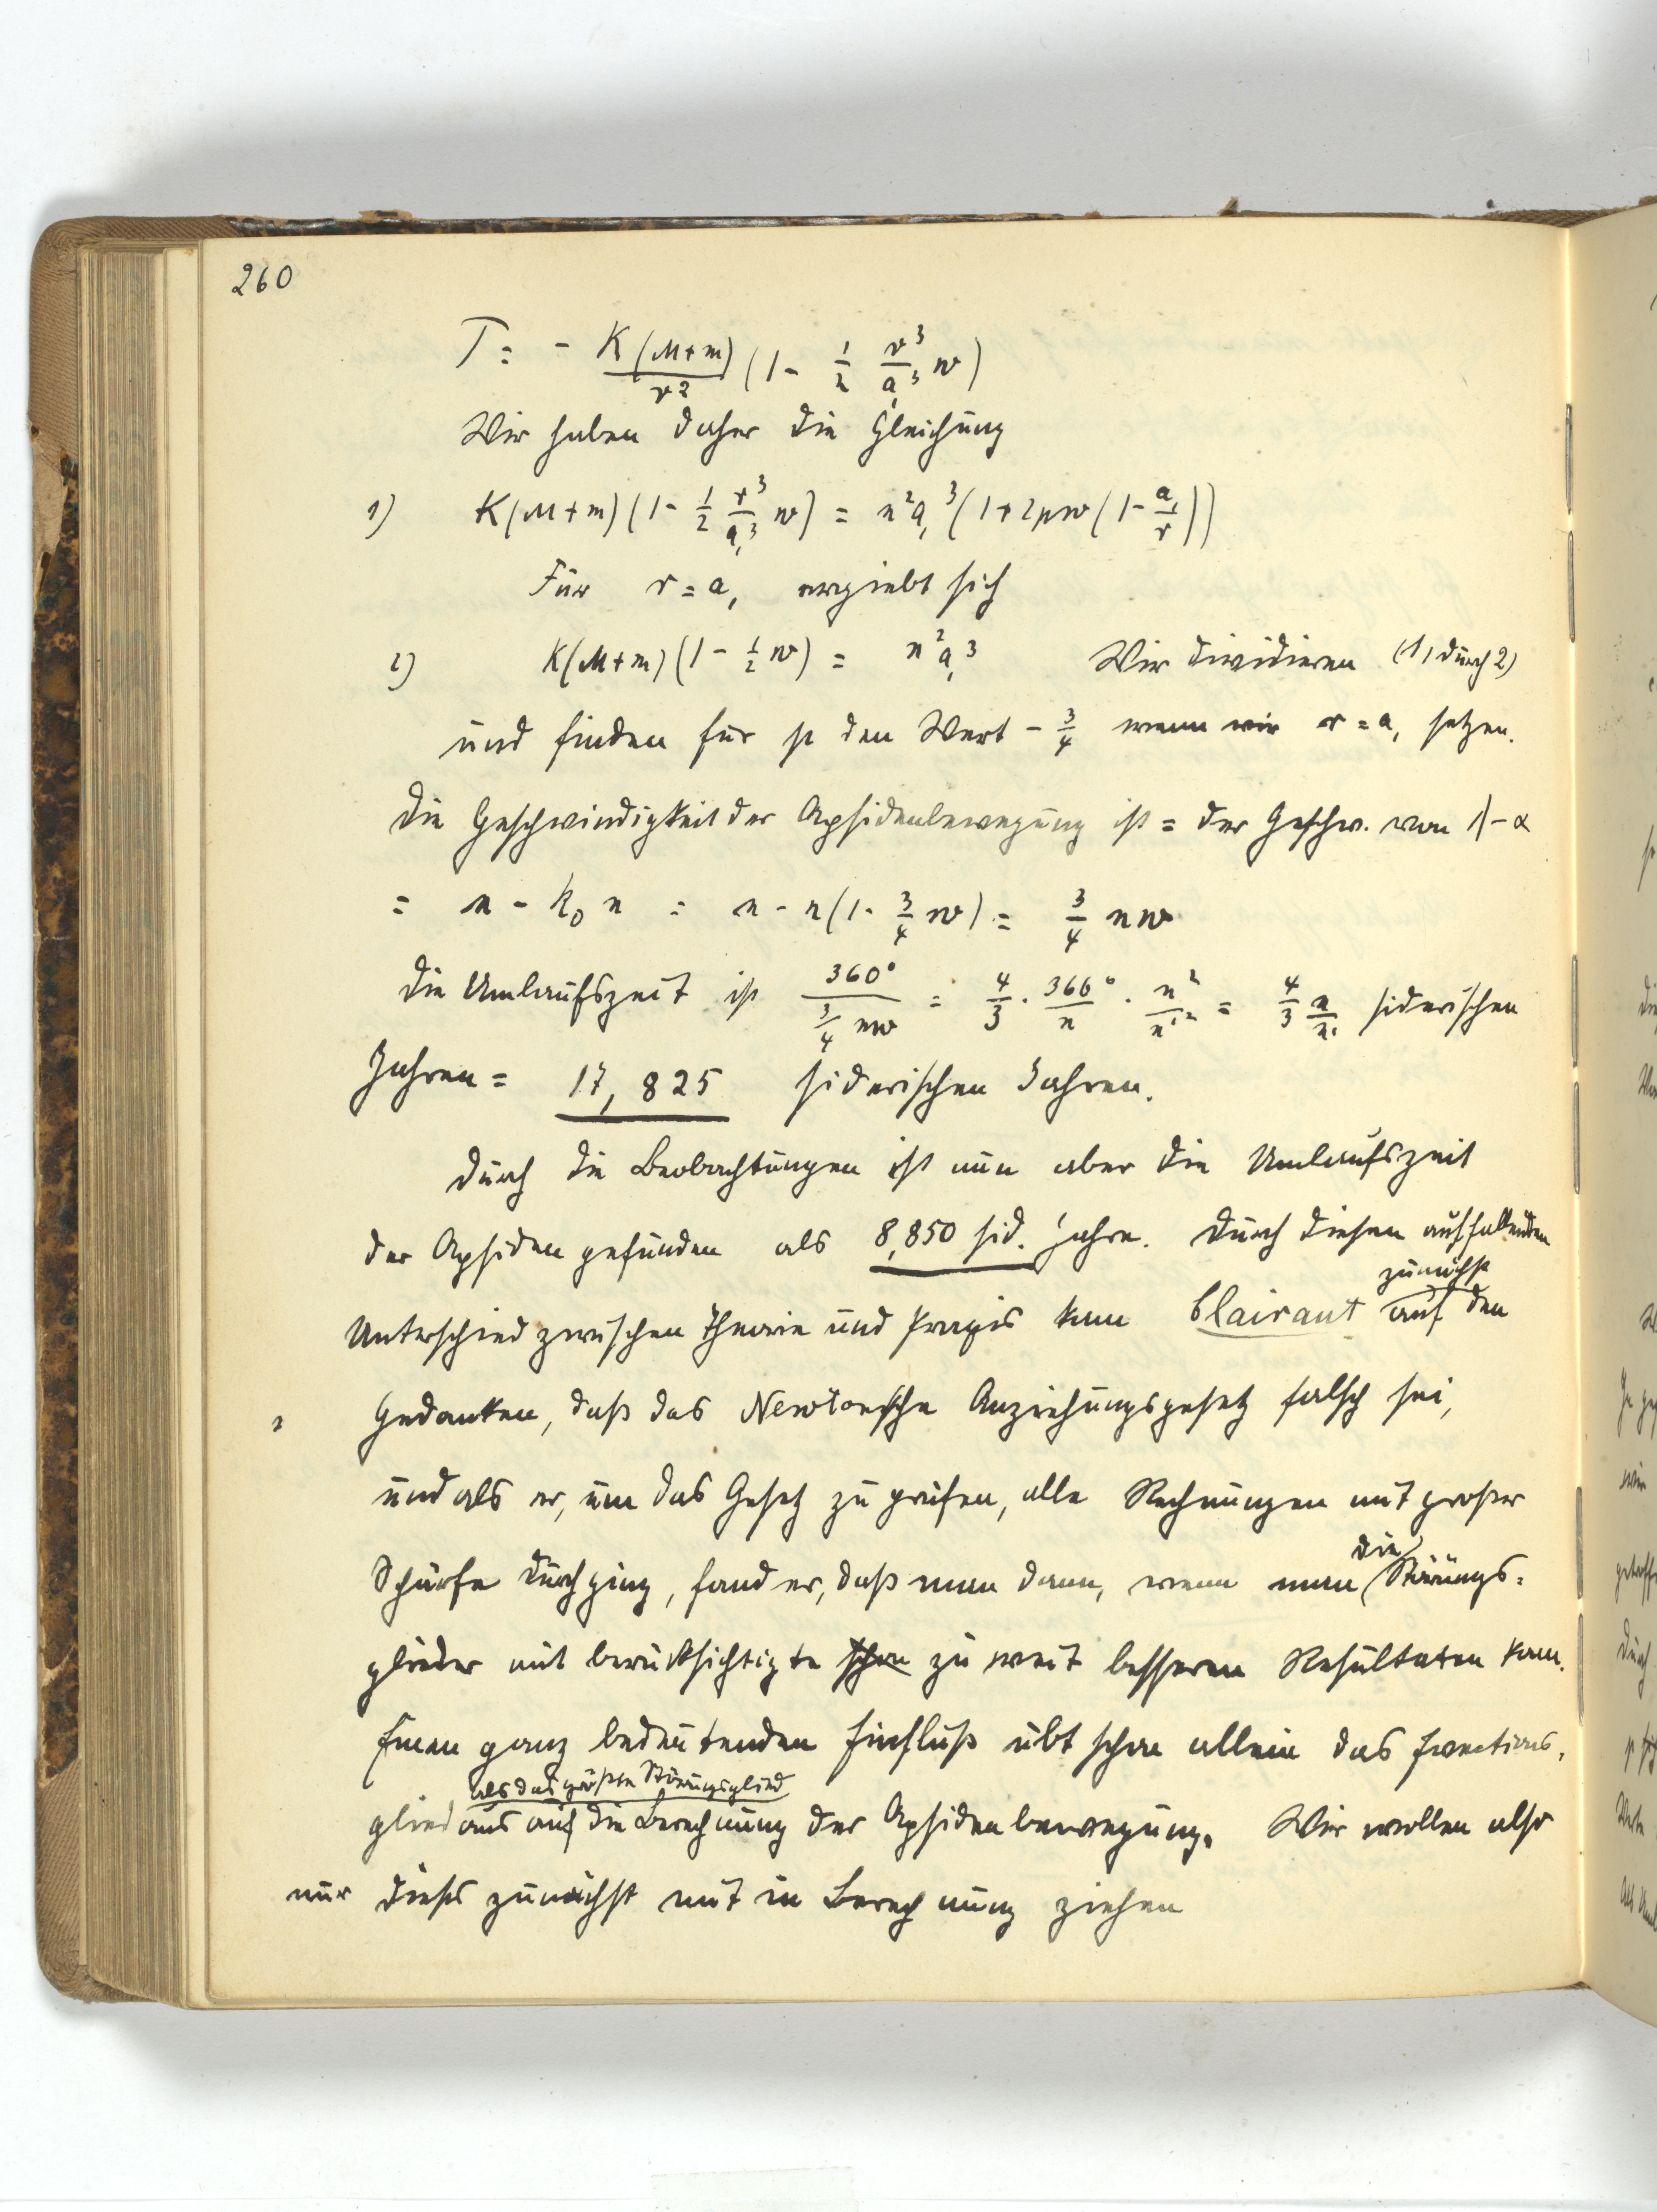 260
T = - K(M+m)/r² (1 - 1/2 r³/a,³ w)
Wir haben daher die Gleichung
1) K(M+m)(1 - 1/2 r³/a,³ w) = n²a,³(1+2pw(1 - a,/r))
Für r = a, ergiebt sich
2) K(M+m)(1 - 1/2 w) = n²a,³ Wir dividieren (1, durch 2)
und finden für p den Wert - 3/4 wenn wir r = a, setzen.
Die Geschwindigkeit der Apsidenbewegung ist = der Geschw. von λ - α
= n - k₀ n = n - n(1 - 3/4 w) = 3/4 nw
Die Umlaufszeit ist 360°/(3/4 nw) = 4/3 · 360°/n · n²/n'² = 4/3 n/n' siderischen
Jahren = 17,825 siderischen Jahren.
Durch die Beobachtungen ist nun aber die Umlaufszeit
der Apsiden gefunden als 8,850 sid. Jahre. Durch diesen auffallenden
zunächst
Unterschied zwischen Theorie und Praxis kam Clairaut auf den
Gedanken, daß das Newtonsche Anziehungsgesetz falsch sei,
und als er, um das Gesetz zu prüfen, alle Rechnungen mit großer
die
Schärfe durchging, fand er, daß man dann, wenn man Störungs-
glieder mit berücksichtigte schon zu weit besseren Resultaten kam.
Einen ganz bedeutenden Einfluß übt schon allein das Evections-
als das größte Störungsglied
glied aus auf die Berechnung der Apsidenbewegung. Wir wollen also
nur dieses zunächst mit in Berechnung ziehen